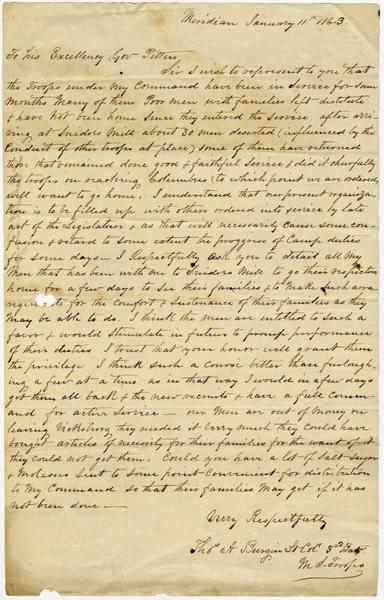 Meridian January 11th 1863.
To his Excellency Gov Pettus,
Sir I wish to represent to you that
the Troops under My Command have been in Service for some
Months Many of them Poor men with families left destitute
& have not been home Since they entered the Service after arriv
ing at Sniders Mill about 30 men deserted (influenced by the
Conduct of other troops at place) some of them have returned
those that remained done good & faithful Service & did it cheerfully
the troops on reaching Columbus (to which point we are ordered)
will want to go home, I understand that our present organiza
tion is to be filled up with others ordered into service by late
act of the Legislature & as that will necessarily cause some con
fusion & retard to some extent the progress of Camp duties
for some days — I Respectfully ask you to detail all My
Men that has been with me to Sniders Mill to go their respective
home for a few days to See their families & to Make Such arra
ngements for the Comfort & Sustenance of their families as they
May be able to do. I think the men are entitled to Such a
favor & would stimulate in future to prompt performance
of their duties I trust that your honor will grant them
the privilege I think Such a Course better than furlough
ing a few at a time as in that way I would in a few days
get them all back & the new recruits & have a full Comm
and for active Service — our Men are out of Money on
leaving Vicksburg they needed it Very much they could have
bought articles of necessity for their families for the want of it
they could not get them. Could you have a lot of Salt Sugar
& Molasses Sent to Some point Convenient for distribution
to My Command So that their families May get if it has
not been done —
Very Respectfully
Thos A Burgin Lt Col 3rd Batt
M. S. Troops